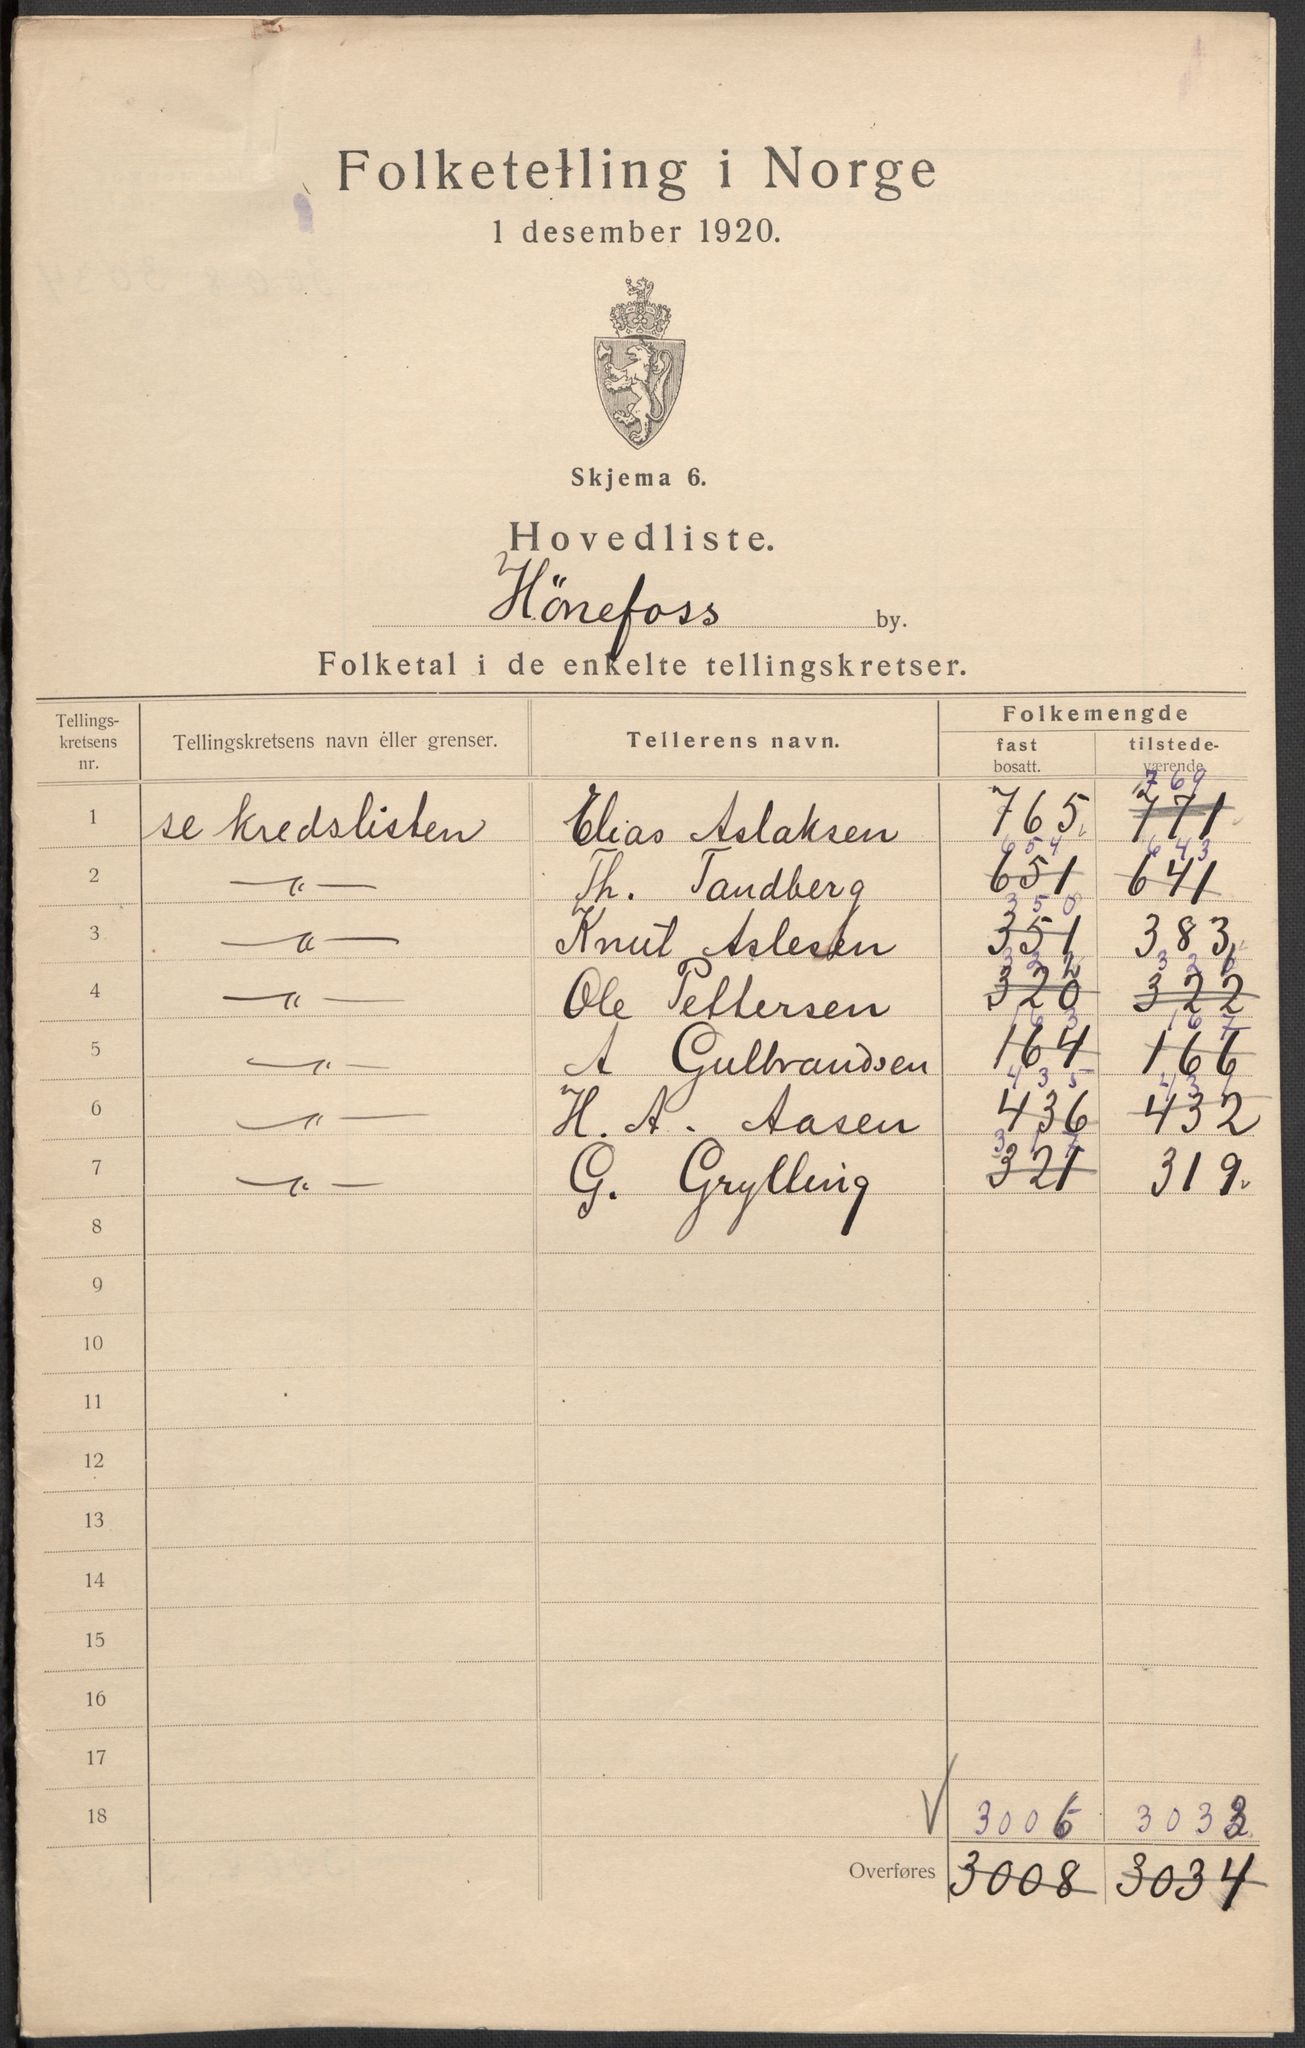 Folketelling i Norge
1 desember 1920.
Skjema 6.
Hovedliste.
Hönefoss by.
Folketal i de enkelte tellingskretser.
Tellings-kretsens nr. Tellingskretsens navn eller grenser. Tellerens navn. Folkemengde
fast bosatt. tilstede-værende
769
1 se kredslisten Elias Aslaksen 765. 771
654 643
2 —"— Th. Tandberg 651 641
350
3 —"— Knut Aslesen 351 383.
322 326
4 —"— Ole Pettersen 320 322
163 167
5 —"— A Gulbrandsen 164 166
435 431
6 —"— H. A. Aasen 436 432
317
7 —"— G. Grylling 321 319.
8
9
10
11
12
13
14
15
16
17
18 3006
Overføres 3008 3034